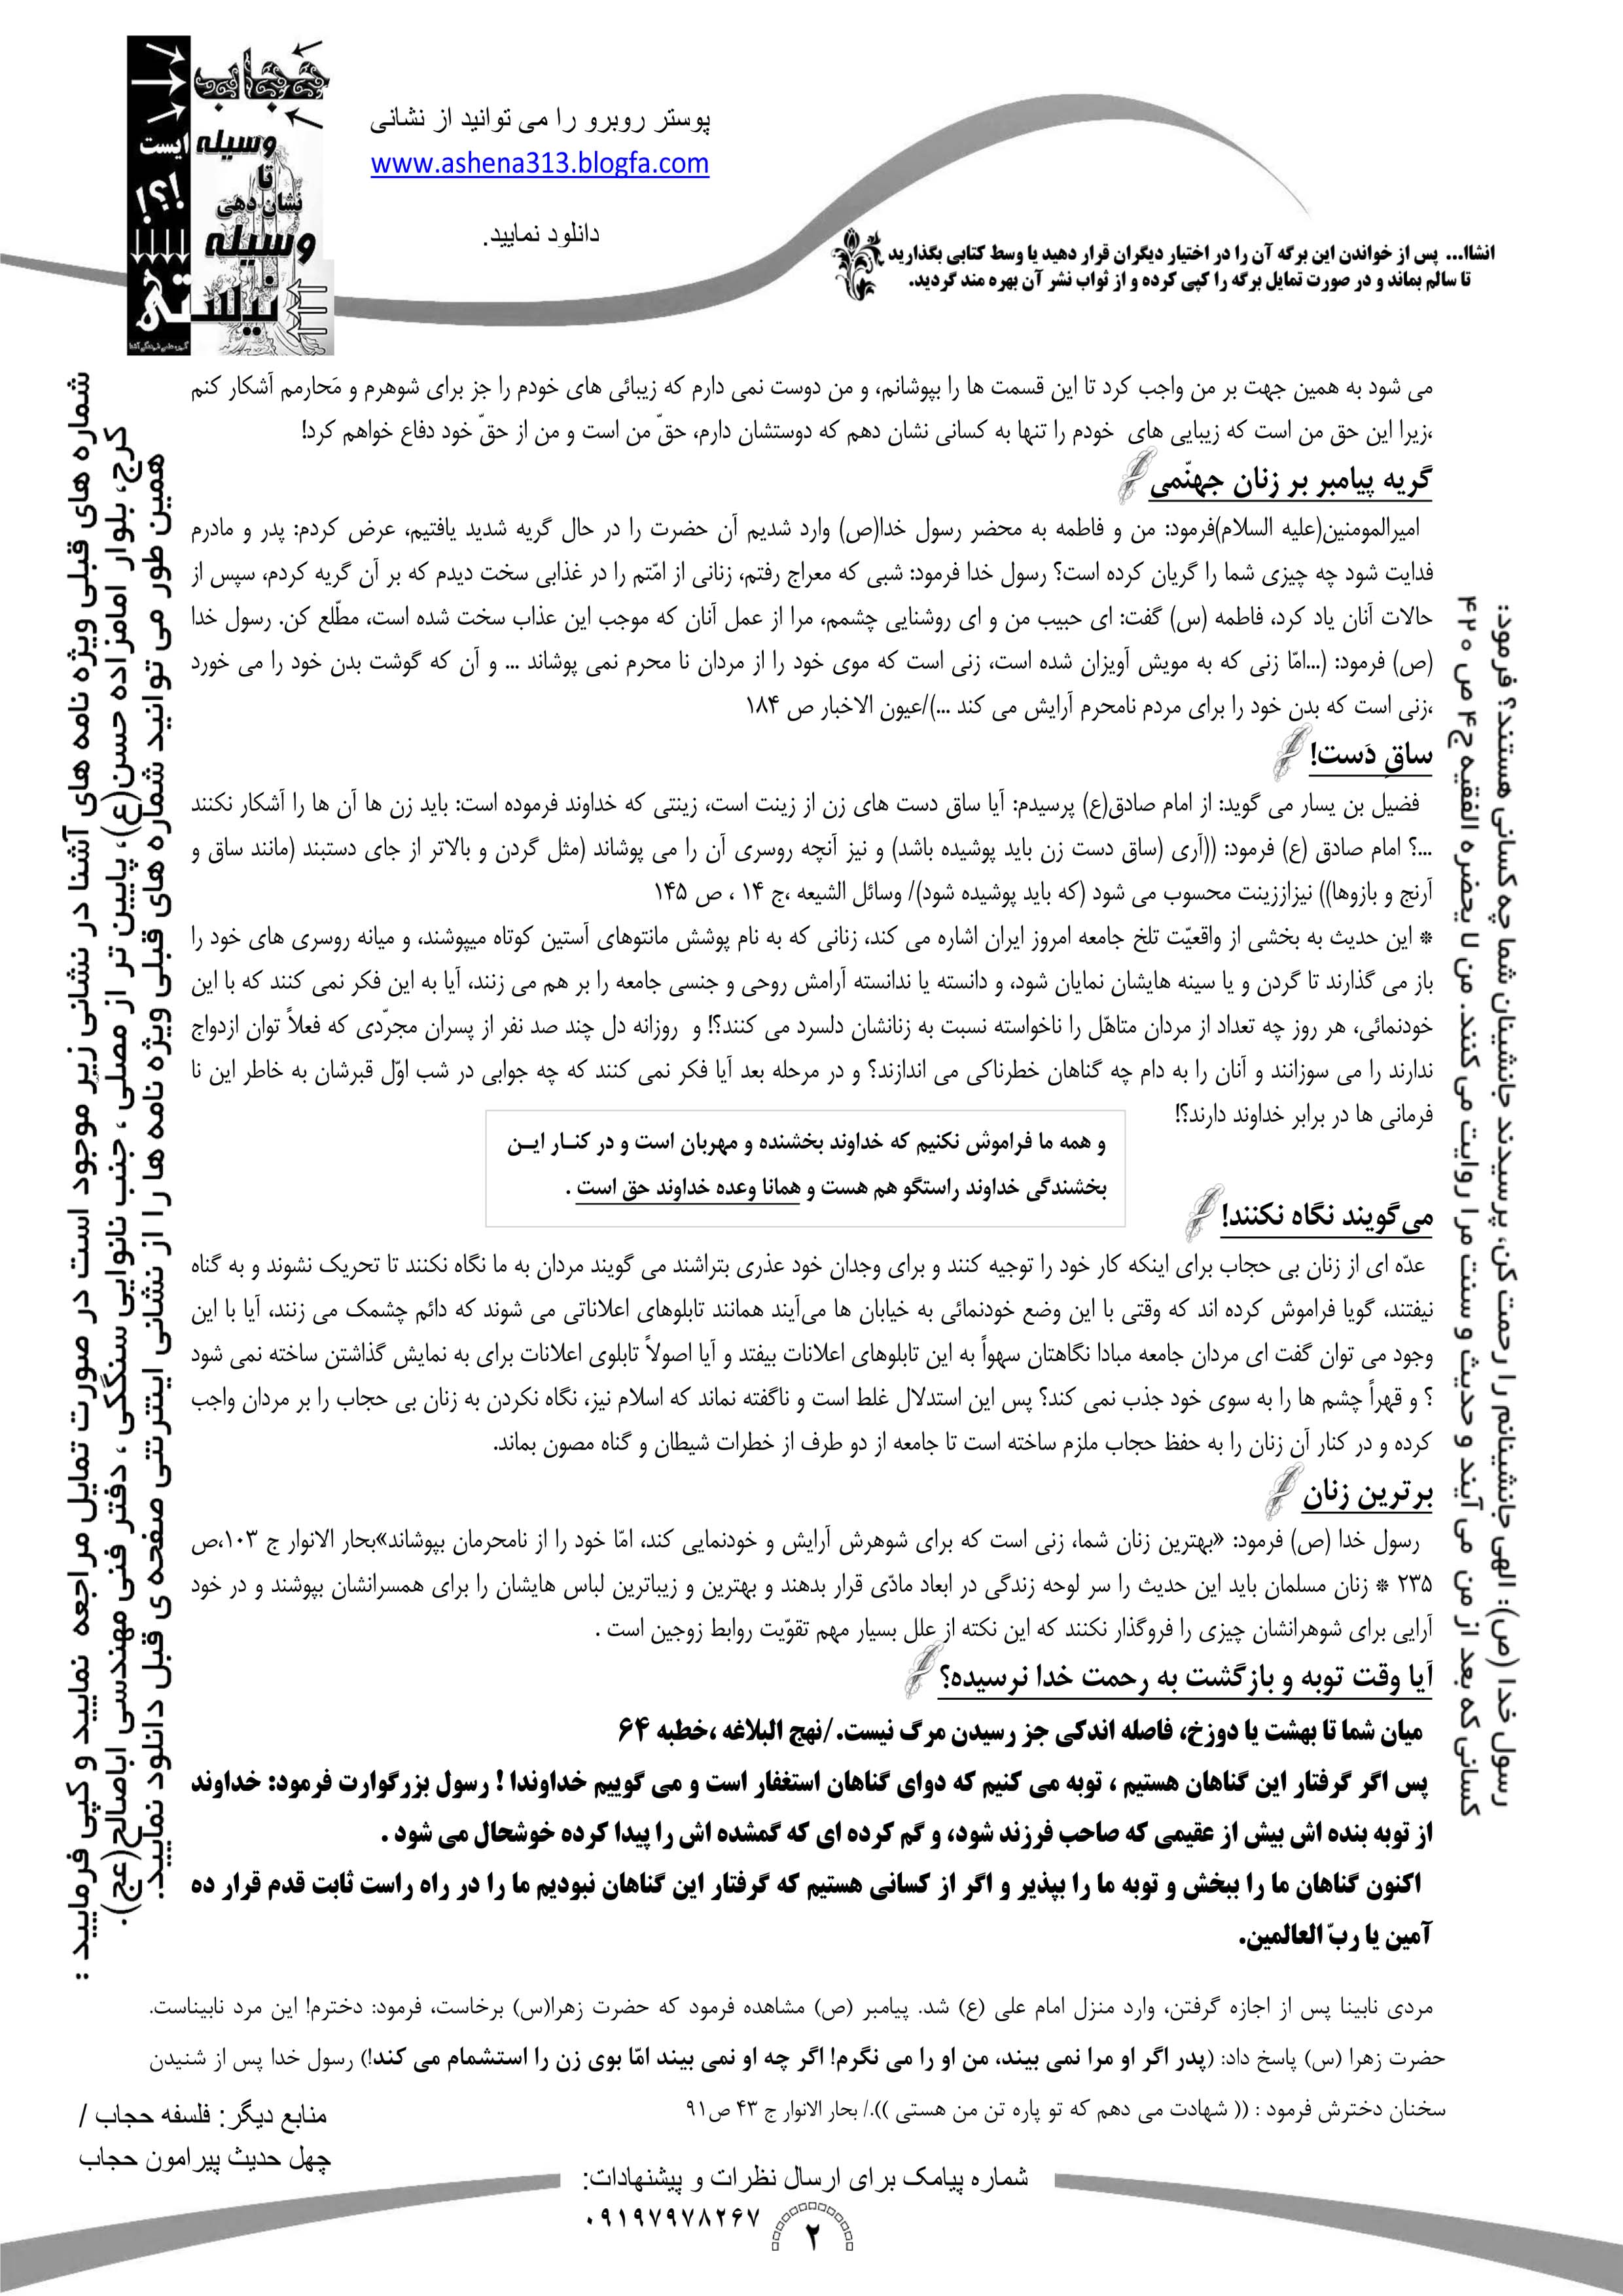 حجاب
وسیله ایست
تا
نشان دهی
!؟!
وسیله
نیستی
پوستر روبرو را می توانید از نشانی
www.ashena313.blogfa.com
دانلود نمایید.
انشاا... پس از خواندن این برگه آن را در اختیار دیگران قرار دهید یا وسط کتابی بگذارید
تا سالم بماند و در صورت تمایل برگه را کپی کرده و از ثواب نشر آن بهره مند گردید.
می شود به همین جهت بر من واجب کرد تا این قسمت ها را بپوشانم، و من دوست نمی دارم که زیبائی های خودم را جز برای شوهرم و مَحارمم آشکار کنم
،زیرا این حق من است که زیبایی های خودم را تنها به کسانی نشان دهم که دوستشان دارم، حقّ من است و من از حقّ خود دفاع خواهم کرد!
گریه پیامبر بر زنان جهنّمی
امیرالمومنین(علیه السلام)فرمود: من و فاطمه به محضر رسول خدا(ص) وارد شدیم آن حضرت را در حال گریه شدید یافتیم، عرض کردم: پدر و مادرم
فدایت شود چه چیزی شما را گریان کرده است؟ رسول خدا فرمود: شبی که معراج رفتم، زنانی از امّتم را در غذابی سخت دیدم که بر آن گریه کردم، سپس از
حالات آنان یاد کرد، فاطمه (س) گفت: ای حبیب من و ای روشنایی چشمم، مرا از عمل آنان که موجب این عذاب سخت شده است، مطلّع کن. رسول خدا
(ص) فرمود: (...امّا زنی که به مویش آویزان شده است، زنی است که موی خود را از مردان نا محرم نمی پوشاند ... و آن که گوشت بدن خود را می خورد
،زنی است که بدن خود را برای مردم نامحرم آرایش می کند ...)/عیون الاخبار ص ۱۸۴
ساقِ دَست!
فضیل بن یسار می گوید: از امام صادق(ع) پرسیدم: آیا ساق دست های زن از زینت است، زینتی که خداوند فرموده است: باید زن ها آن ها را آشکار نکنند
...؟ امام صادق (ع) فرمود: ((آری (ساق دست زن باید پوشیده باشد) و نیز آنچه روسری آن را می پوشاند (مثل گردن و بالاتر از جای دستبند (مانند ساق و
آرنج و بازوها)) نیزاززینت محسوب می شود (که باید پوشیده شود)/ وسائل الشیعه ،ج ۱۴ ، ص ۱۴۵
* این حدیث به بخشی از واقعیّت تلخ جامعه امروز ایران اشاره می کند، زنانی که به نام پوشش مانتوهای آستین کوتاه میپوشند، و میانه روسری های خود را
باز می گذارند تا گردن و یا سینه هایشان نمایان شود، و دانسته یا ندانسته آرامش روحی و جنسی جامعه را بر هم می زنند، آیا به این فکر نمی کنند که با این
خودنمائی، هر روز چه تعداد از مردان متاهّل را ناخواسته نسبت به زنانشان دلسرد می کنند؟! و روزانه دل چند صد نفر از پسران مجرّدی که فعلاً توان ازدواج
ندارند را می سوزانند و آنان را به دام چه گناهان خطرناکی می اندازند؟ و در مرحله بعد آیا فکر نمی کنند که چه جوابی در شب اوّل قبرشان به خاطر این نا
فرمانی ها در برابر خداوند دارند؟!
و همه ما فراموش نکنیم که خداوند بخشنده و مهربان است و در کنـار ایـن
بخشندگی خداوند راستگو هم هست و همانا وعده خداوند حق است .
می‌گویند نگاه نکنند!
عدّه ای از زنان بی حجاب برای اینکه کار خود را توجیه کنند و برای وجدان خود عذری بتراشند می گویند مردان به ما نگاه نکنند تا تحریک نشوند و به گناه
نیفتند، گویا فراموش کرده اند که وقتی با این وضع خودنمائی به خیابان ها می‌آیند همانند تابلوهای اعلاناتی می شوند که دائم چشمک می زنند، آیا با این
وجود می توان گفت ای مردان جامعه مبادا نگاهتان سهواً به این تابلوهای اعلانات بیفتد و آیا اصولاً تابلوی اعلانات برای به نمایش گذاشتن ساخته نمی شود
؟ و قهراً چشم ها را به سوی خود جذب نمی کند؟ پس این استدلال غلط است و ناگفته نماند که اسلام نیز، نگاه نکردن به زنان بی حجاب را بر مردان واجب
کرده و در کنار آن زنان را به حفظ حجاب ملزم ساخته است تا جامعه از دو طرف از خطرات شیطان و گناه مصون بماند.
برترین زنان
رسول خدا (ص) فرمود: «بهترین زنان شما، زنی است که برای شوهرش آرایش و خودنمایی کند، امّا خود را از نامحرمان بپوشاند»بحار الانوار ج ۱۰۳،ص
۲۳۵ * زنان مسلمان باید این حدیث را سر لوحه زندگی در ابعاد مادّی قرار بدهند و بهترین و زیباترین لباس هایشان را برای همسرانشان بپوشند و در خود
آرایی برای شوهرانشان چیزی را فروگذار نکنند که این نکته از علل بسیار مهم تقوّیت روابط زوجین است .
آیا وقت توبه و بازگشت به رحمت خدا نرسیده؟
میان شما تا بهشت یا دوزخ، فاصله اندکی جز رسیدن مرگ نیست./نهج البلاغه ،خطبه ۶۴
پس اگر گرفتار این گناهان هستیم ، توبه می کنیم که دوای گناهان استغفار است و می گوییم خداوندا ! رسول بزرگوارت فرمود: خداوند
از توبه بنده اش بیش از عقیمی که صاحب فرزند شود، و گم کرده ای که گمشده اش را پیدا کرده خوشحال می شود .
اکنون گناهان ما را ببخش و توبه ما را بپذیر و اگر از کسانی هستیم که گرفتار این گناهان نبودیم ما را در راه راست ثابت قدم قرار ده
آمین یا ربّ العالمین.
مردی نابینا پس از اجازه گرفتن، وارد منزل امام علی (ع) شد. پیامبر (ص) مشاهده فرمود که حضرت زهرا(س) برخاست، فرمود: دخترم! این مرد نابیناست.
حضرت زهرا (س) پاسخ داد: (پدر اگر او مرا نمی بیند، من او را می نگرم! اگر چه او نمی بیند امّا بوی زن را استشمام می کند!) رسول خدا پس از شنیدن
سخنان دخترش فرمود : (( شهادت می دهم که تو پاره تن من هستی )).‍/ بحار الانوار ج ۴۳ ص۹۱
رسول خدا (ص): الهی جانشینانم را رحمت کن، پرسیدند جانشینان شما چه کسانی هستند؟ فرمود:
کسانی که بعد از من می آیند و حدیث و سنت مرا روایت می کنند. من لا یحضره الفقیه ج۴ ص ۴۲۰
شماره های قبلی ویژه نامه های آشنا در نشانی زیر موجود است در صورت تمایل مراجعه نمایید و کپی فرمایید :
کرج، بلوار امامزاده حسن(ع)، پایین تر از مصلی ، جنب نانوایی سنگکی ، دفتر فنی مهندسی اباصالح(عج).
همین طور می توانید شماره های قبلی ویژه نامه ها را از نشانی اینترنتی صفحه ی قبل دانلود نمایید.
منابع دیگر: فلسفه حجاب /
چهل حدیث پیرامون حجاب
شماره پیامک برای ارسال نظرات و پیشنهادات:
۰۹۱۹۷۹۷۸۲۶۷
۲